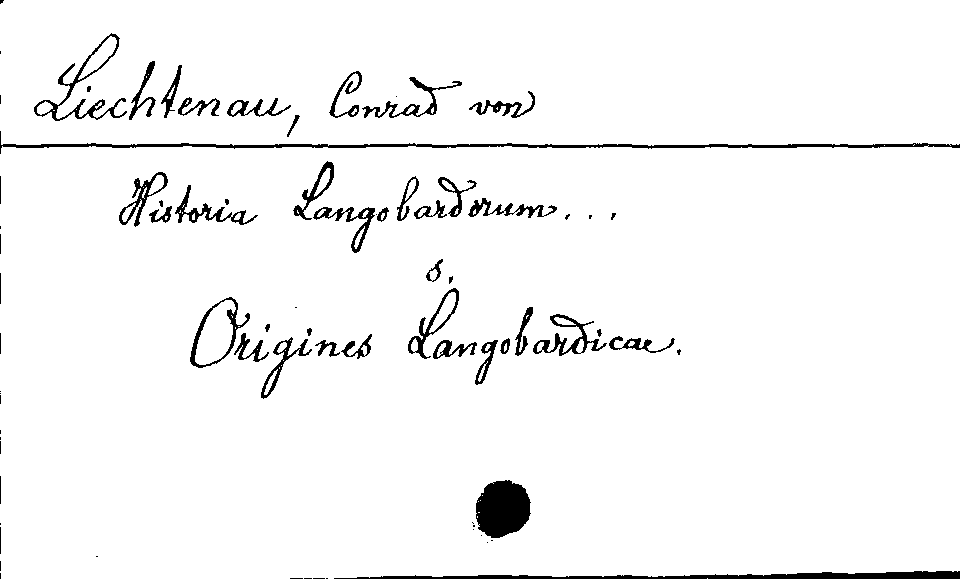 Liechtenau, Conrad von
Historia Langobardorum...
s.
Origines Langobardicae.